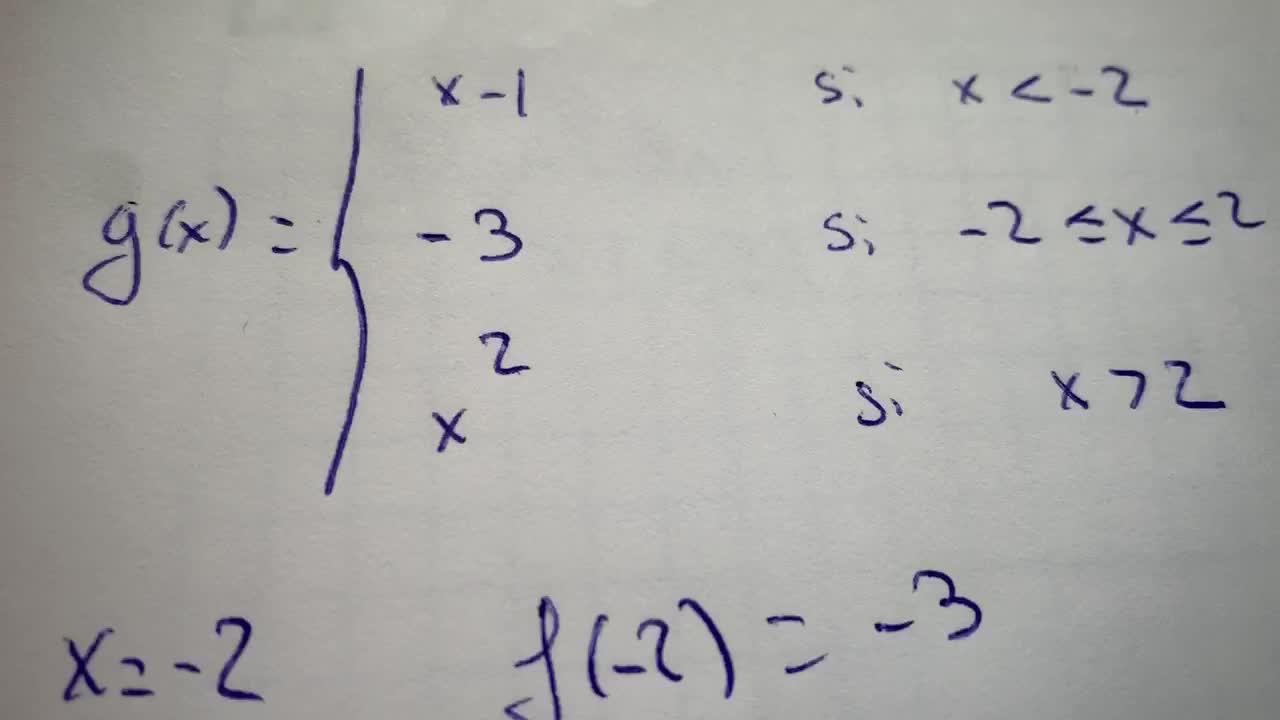 x - 1 si x < -2
g(x) = { - 3 si -2 ≤ x ≤ 2
x² si x > 2
x = -2 f(-2) = -3